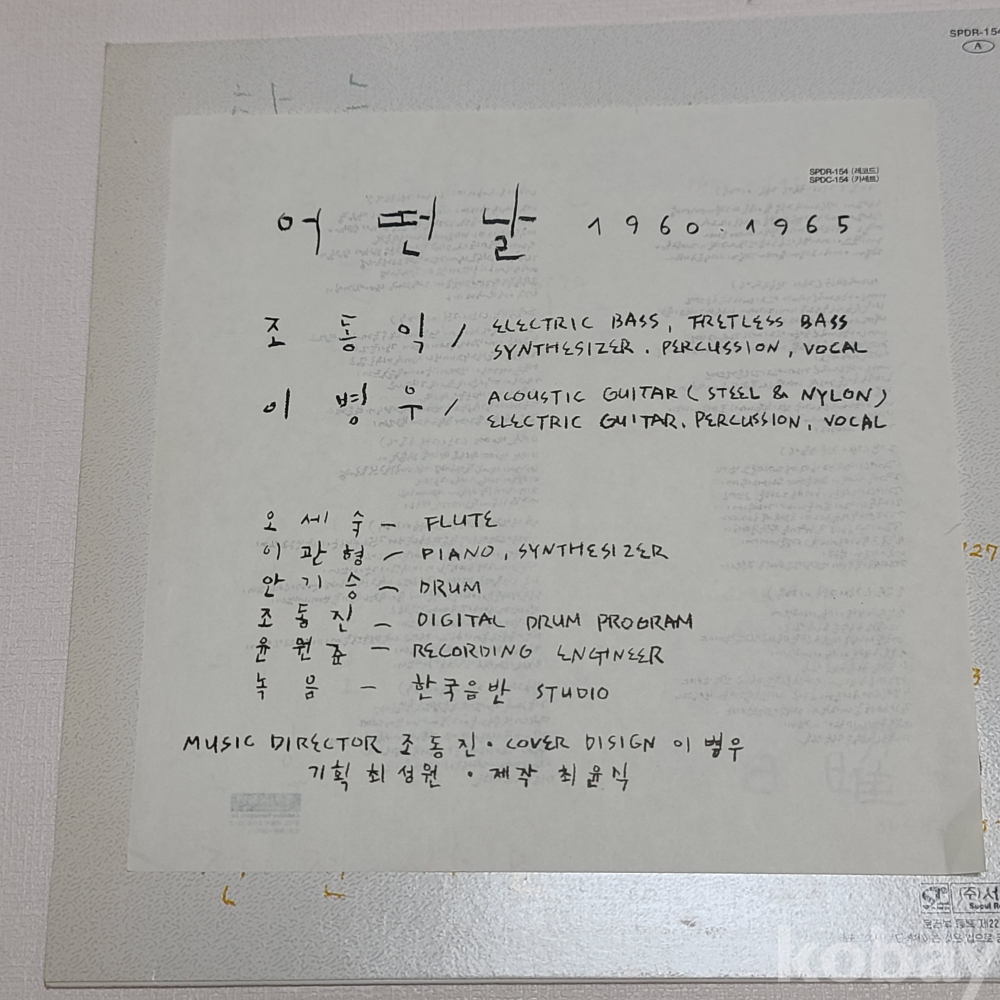 SPDR-154
A
SPDR-154 (레코드)
SPDC-154 (카세트)
어떤날 1960.1965
조동익 / ELECTRIC BASS, FRETLESS BASS
SYNTHESIZER. PERCUSSION, VOCAL
이병우 / ACOUSTIC GUITAR (STEEL & NYLON)
ELECTRIC GUITAR. PERCUSSION, VOCAL
오세숙 - FLUTE
이관형 - PIANO, SYNTHESIZER
안기승 - DRUM
조동진 - DIGITAL DRUM PROGRAM
윤원준 - RECORDING ENGINEER
녹음 - 한국음반 STUDIO
MUSIC DIRECTOR 조동진 · COVER DISIGN 이병우
기획 최성원 · 제작 최윤식
'27
3
(주)서
Seoul R
kobay